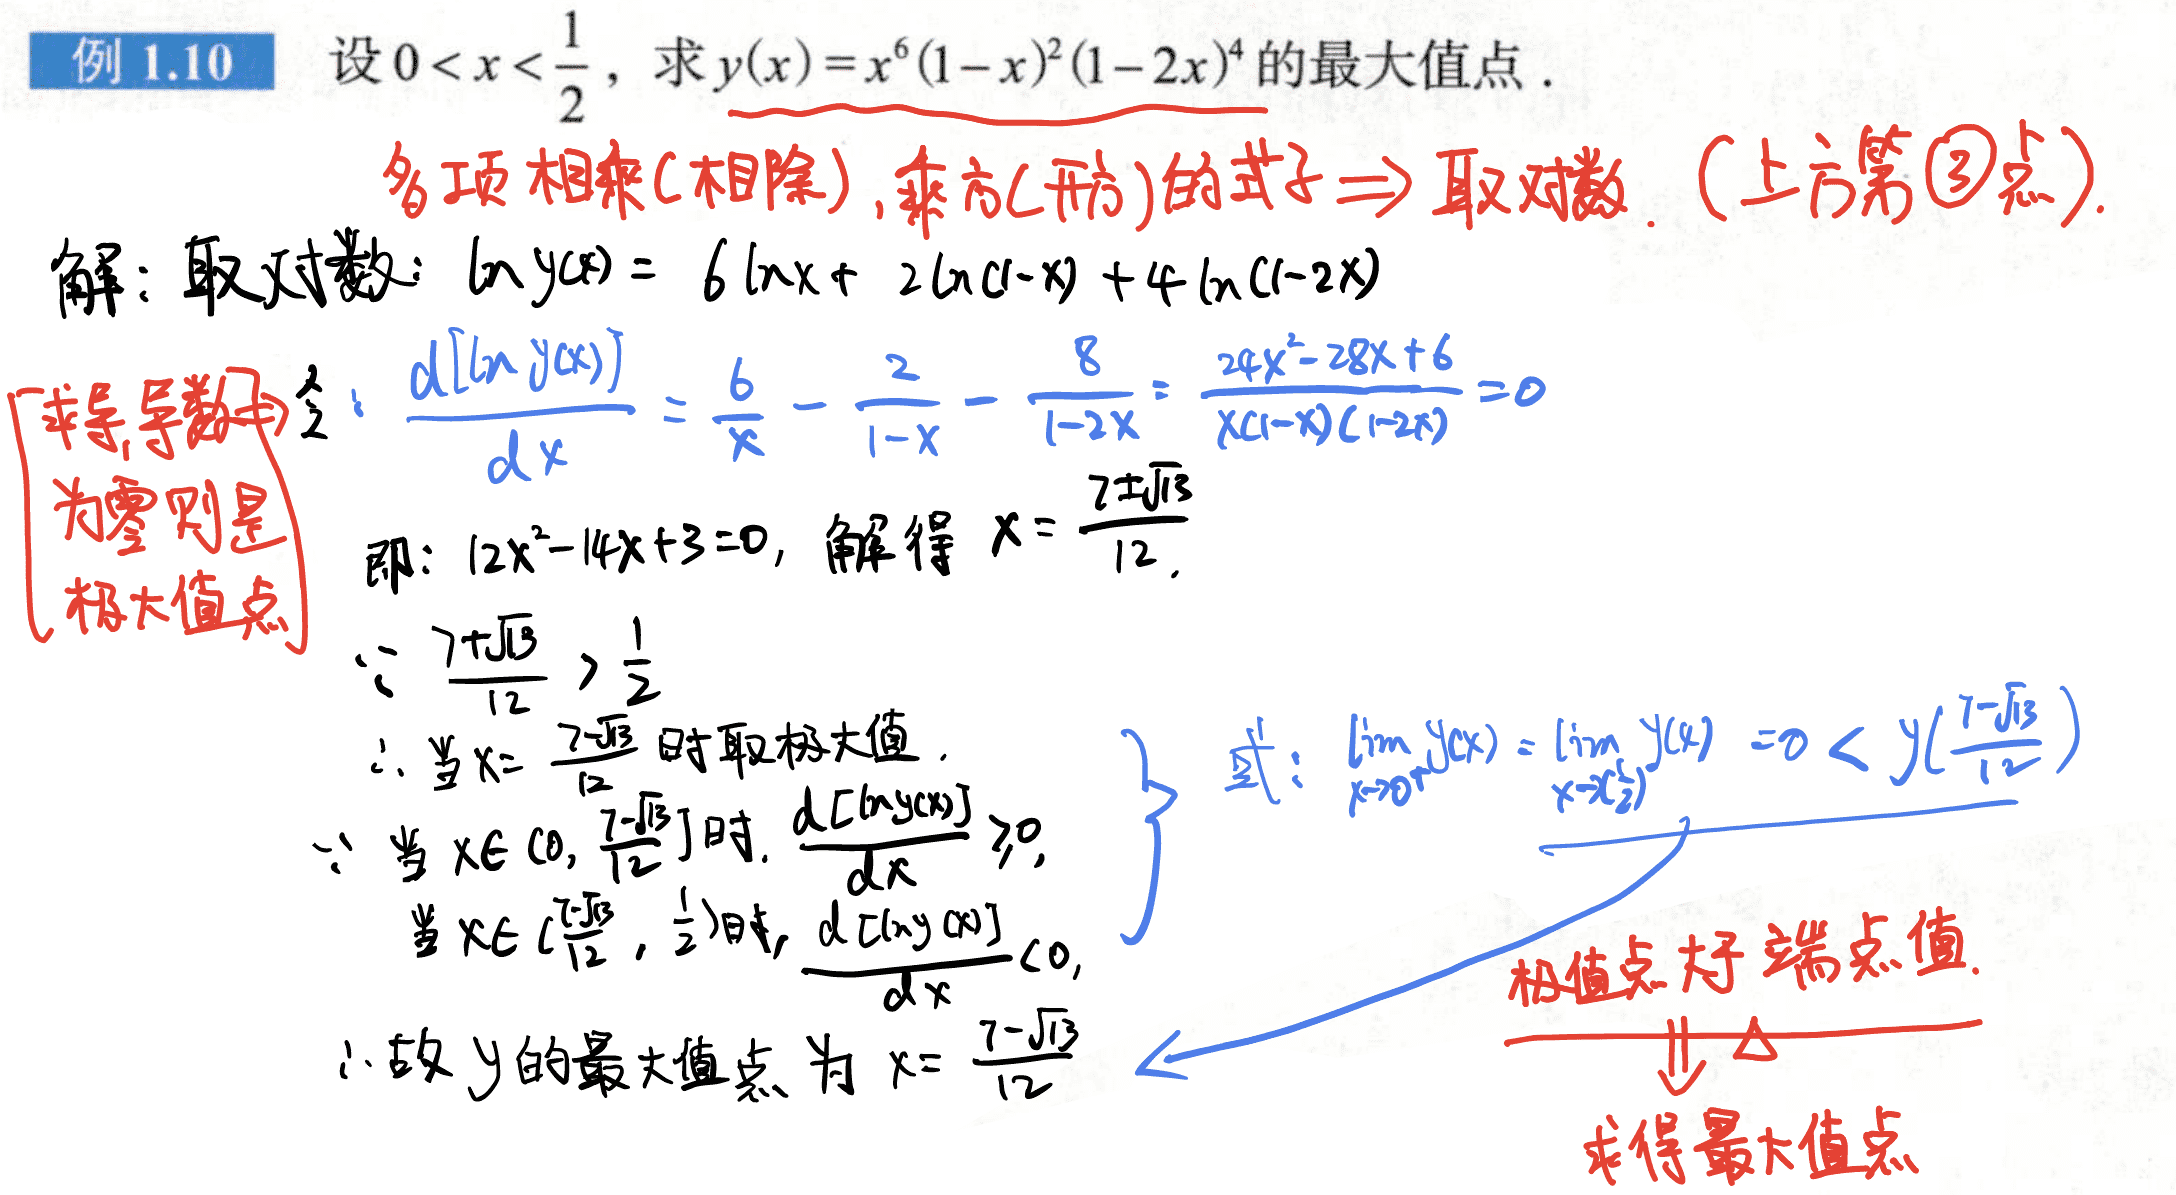 例 1.10 设 0 < x < 1/2 ，求 y(x) = x⁶(1－x)²(1－2x)⁴ 的最大值点．
多项相乘(相除),乘方(开方)的式子 ⇒ 取对数. (上方第③点).
解: 取对数: ln y(x) = 6lnx + 2ln(1-x) + 4ln(1-2x)
[求导,导数 ⇒
为零则是
极大值点]
令: d[ln y(x)]/dx = 6/x - 2/(1-x) - 8/(1-2x) = (24x²-28x+6)/(x(1-x)(1-2x)) = 0
即: 12x²-14x+3=0, 解得 x = (7±√13)/12.
∵ (7+√13)/12 > 1/2
∴ 当 x= (7-√13)/12 时取极大值.
∵ 当 x∈(0, (7-√13)/12]时. d[lny(x)]/dx ≥0,
当 x∈((7-√13)/12, 1/2)时, d[lny(x)]/dx <0,
或: lim x→0⁺ y(x) = lim x→(1/2)⁻ y(x) =0 < y((7-√13)/12)
∴故 y 的最大值点 为 x= (7-√13)/12
极值点大于端点值.
⇓ △
求得最大值点